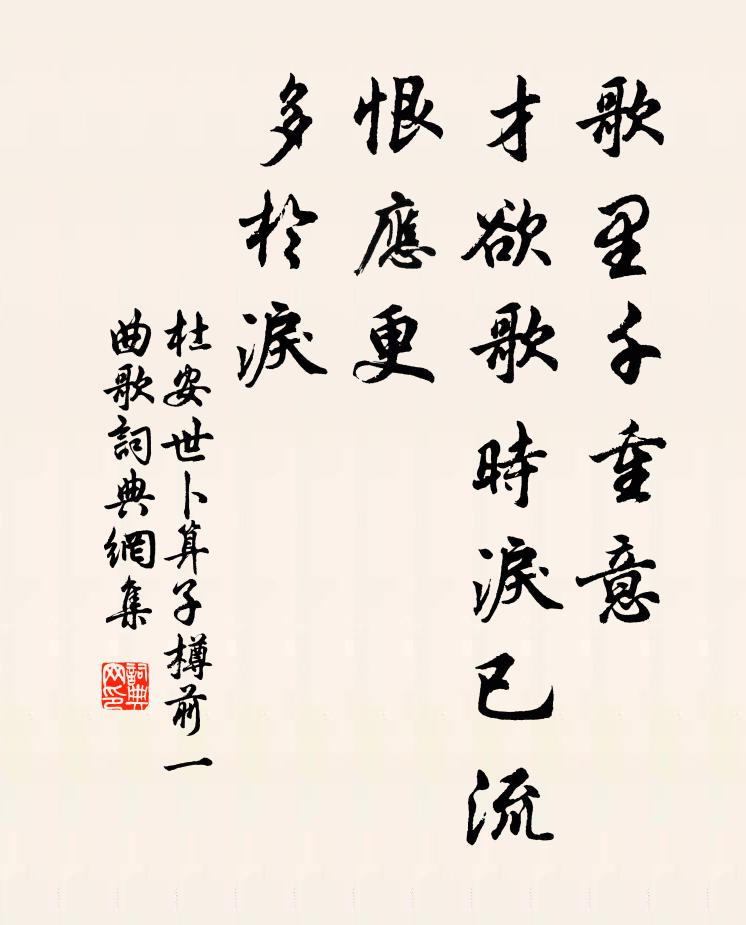 歌里千重意
才欲歌時淚已流
恨應更
多於淚
杜安世卜算子樽前一
曲歌詞典網集
詞典網印